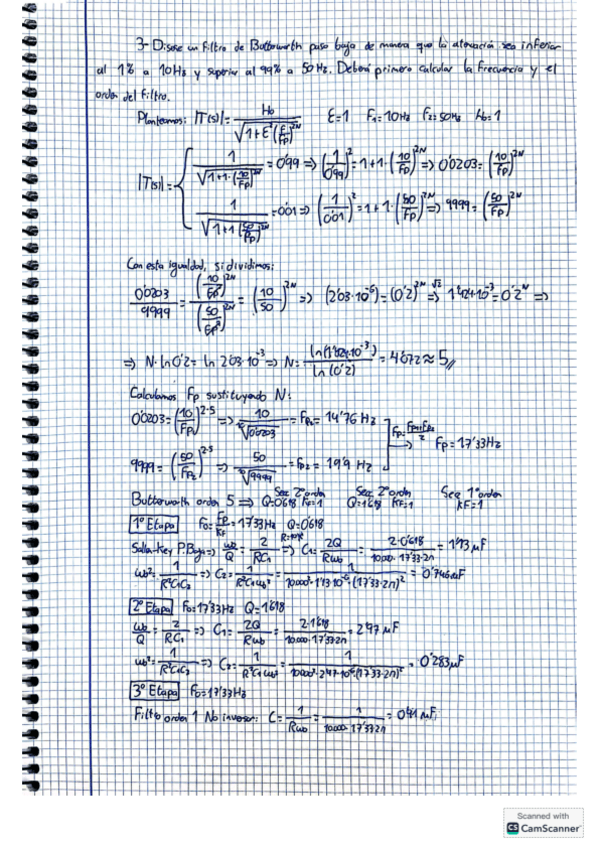 3- Diseñe un filtro de Butterworth paso baja de manera que la atenuación sea inferior
al 1% a 10Hz y superior al 99% a 50Hz. Deberá primero calcular la frecuencia y el
orden del filtro.
Planteamos: |T(s)| = Ho / √(1+ε²(F/Fp)^2N) ε=1 F1=10Hz F2=50Hz Ho=1
|T(s)| = { 1 / √(1+1·(10/Fp)^2N) = 0'99 => (1/0'99)² = 1+1·(10/Fp)^2N => 0'0203 = (10/Fp)^2N
1 / √(1+1(50/Fp)^2N) = 0'01 => (1/0'01)² = 1+1·(50/Fp)^2N => 9999 = (50/Fp)^2N
Con esta igualdad, si dividimos:
0'0203/9999 = (10/Fp)^2N / (50/Fp)^2N = (10/50)^2N => (2'03·10^-6) = (0'2)^2N => 1'424·10^-3 = 0'2^N =>
=> N·ln0'2 = ln 2'03·10^-3 => N = ln(1'424·10^-3) / ln(0'2) = 4'072 ≈ 5 //
Calculamos Fp sustituyendo N:
0'0203 = (10/Fp1)^2·5 => 10 / ¹⁰√0'0203 = Fp1 = 14'76 Hz
Fp = Fp1+Fp2 / 2 → Fp = 17'33Hz
9999 = (50/Fp2)^2·5 => 50 / ¹⁰√9999 = Fp2 = 19'9 Hz
Sec 2º orden Sec 2º orden Sec 1º orden
Butterworth orden 5 => Q=0'618 KF=1 Q=1'618 KF=1 KF=1
1º Etapa Fo = Fp/KF = 17'33Hz Q=0'618
R=10K
Sallen-Key P.Bajo => ωo/Q = 2/RC1 => C1 = 2Q/Rωo = 2·0'618 / 10.000·17'33·2π = 1'13 μF
ωo² = 1/R²C1C2 => C2 = 1/R²C1ωo² = 1 / 10000²·1'13·10^-6·(17'33·2π)² = 0'746μF
2º Etapa Fo=17'33Hz Q=1'618
ωo/Q = 2/RC1 => C1 = 2Q/Rωo = 2·1'618 / 10.000·17'33·2π = 2'97 μF
ωo² = 1/R²C1C2 => C2 = 1/R²C1ωo² = 1 / 10000²·2'97·10^-6·(17'33·2π)² = 0'283μF
3º Etapa Fo=17'33Hz
Filtro orden 1 No inversor: C = 1/Rωo = 1 / 10.000·17'33·2π = 0'91 μF
Scanned with
CS CamScanner